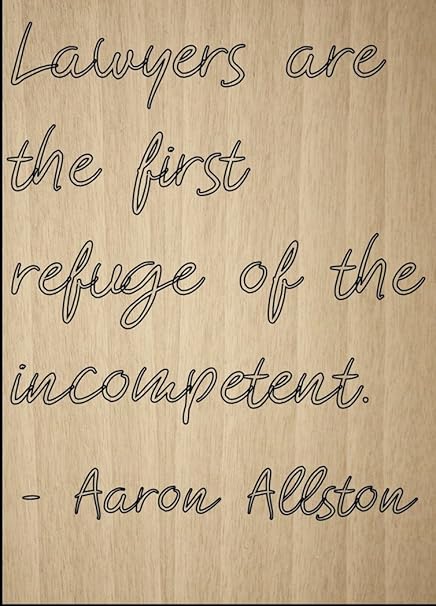 Lawyers are
the first
refuge of the
incompetent.
- Aaron Allston